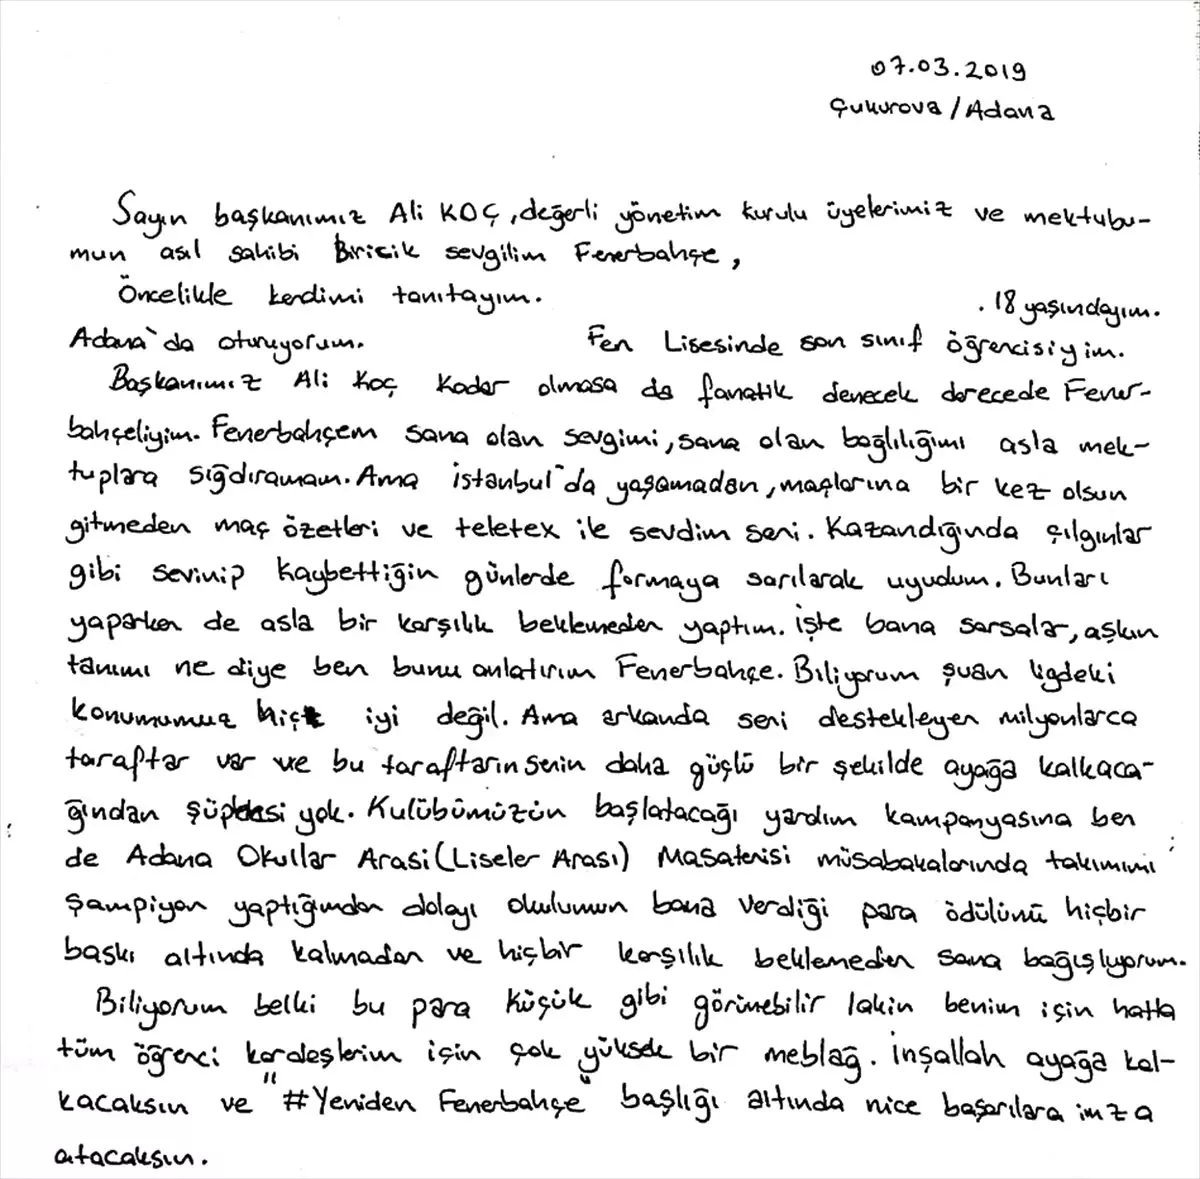 07.03.2019
Çukurova/Adana
Sayın başkanımız Ali KOÇ, değerli yönetim kurulu üyelerimiz ve mektubu-
mun asıl sahibi Biricik sevgilim Fenerbahçe,
Öncelikle kendimi tanıtayım. . 18 yaşındayım.
Adana'da oturuyorum. Fen Lisesinde son sınıf öğrencisiyim.
Başkanımız Ali Koç kadar olmasa da fanatik denecek derecede Fener-
bahçeliyim. Fenerbahçem sana olan sevgimi, sana olan bağlılığımı asla mek-
tuplara sığdıramam. Ama İstanbul'da yaşamadan, maçlarına bir kez olsun
gitmeden maç özetleri ve teletex ile sevdim seni. Kazandığında çılgınlar
gibi sevinip kaybettiğin günlerde formaya sarılarak uyudum. Bunları
yaparken de asla bir karşılık beklemeden yaptım. İşte bana sorsalar, aşkın
tanımı ne diye ben bunu anlatırım Fenerbahçe. Biliyorum şuan ligdeki
konumumuz hiç iyi değil. Ama arkanda seni destekleyen milyonlarca
taraftar var ve bu taraftarın senin daha güçlü bir şekilde ayağa kalkaca-
ğından şüphesi yok. Kulübümüzün başlatacağı yardım kampanyasına ben
de Adana Okullar Arasi (Liseler Arası) Masatenisi müsabakalarında takımımı
şampiyon yaptığımdan dolayı okulumun bana verdiği para ödülünü hiçbir
baskı altında kalmadan ve hiçbir karşılık beklemeden sana bağışlıyorum.
Biliyorum belki bu para küçük gibi görünebilir lakin benim için hatta
tüm öğrenci kardeşlerim için çok yüksek bir meblağ. İnşallah ayağa kal-
kacaksın ve "#Yeniden Fenerbahçe" başlığı altında nice başarılara imza
atacaksın.